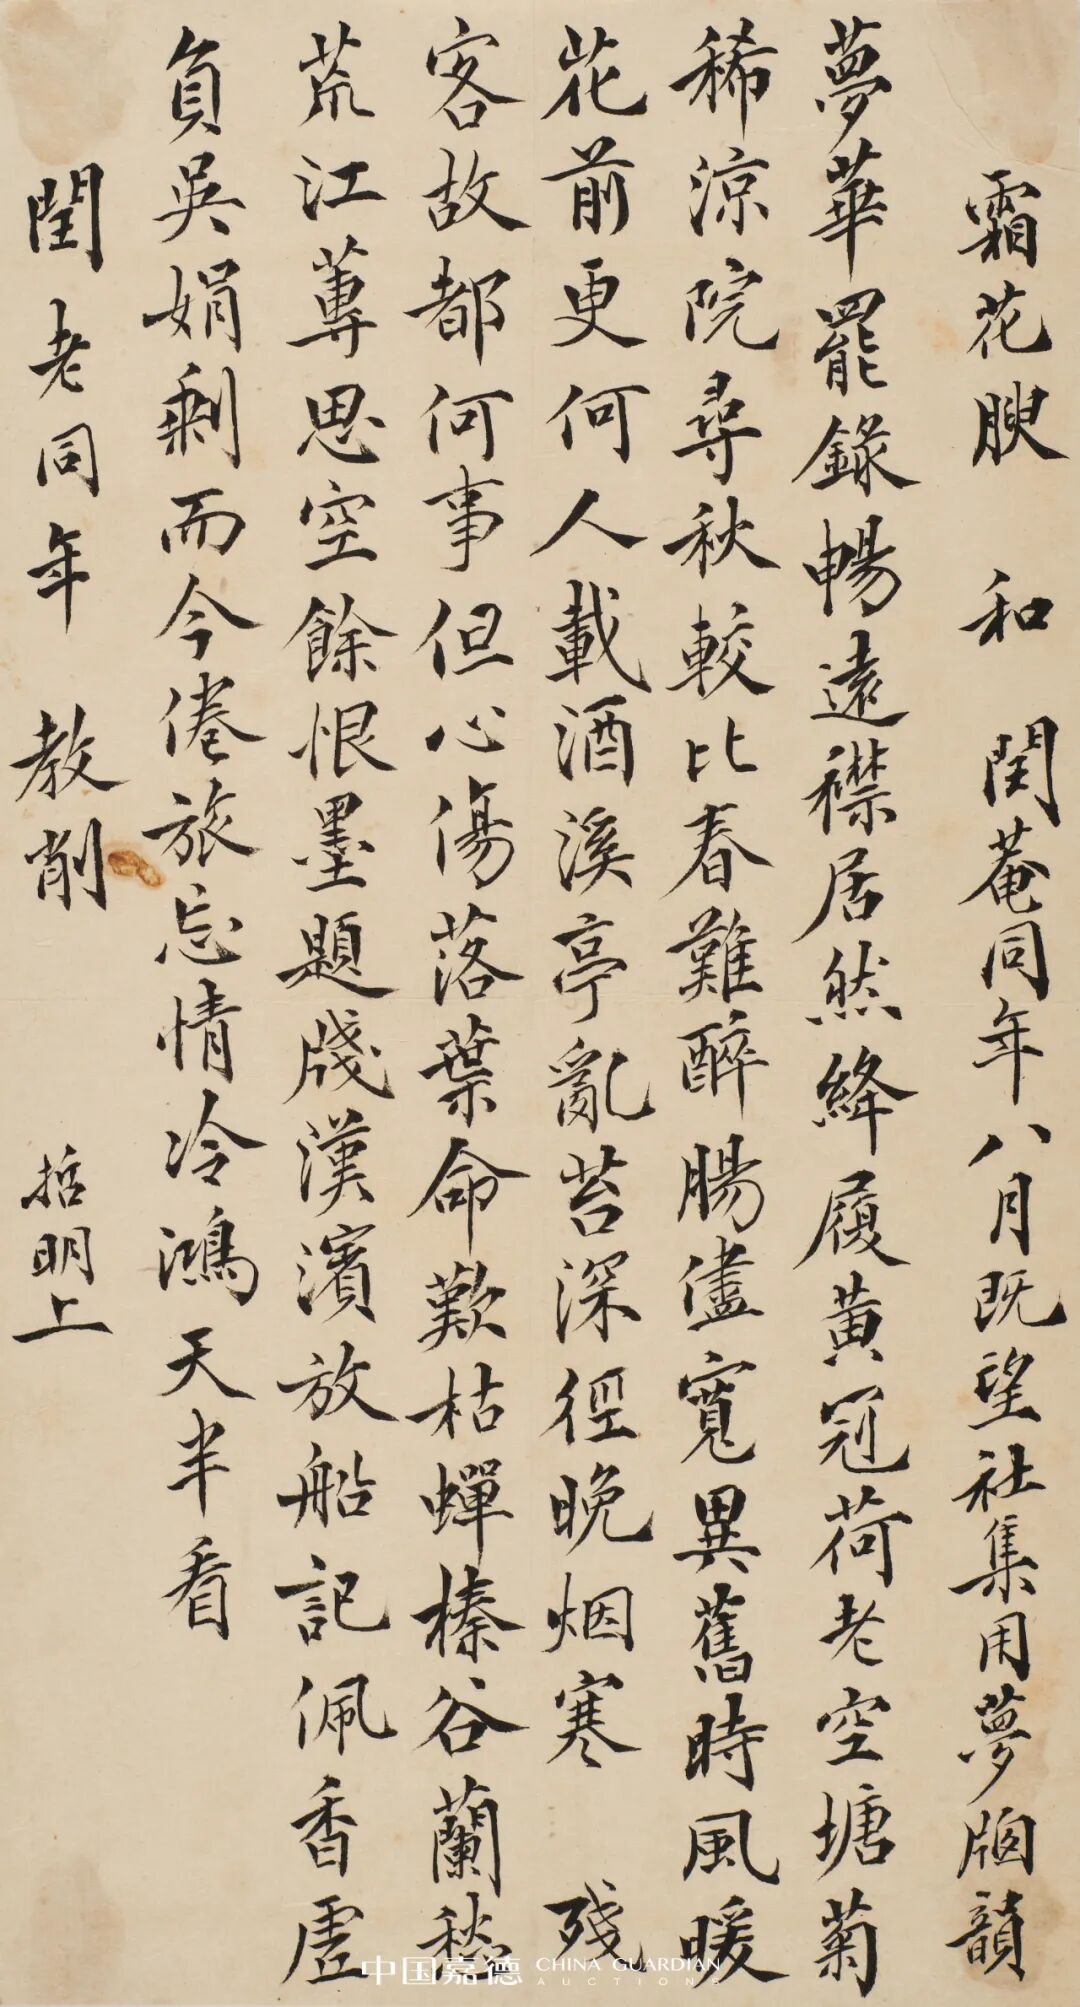 霜花腴 和 閏菴同年八月既望社集用夢窗韻
夢華罷錄暢遠襟居然絳履黃冠荷老空塘菊
稀涼院尋秋較比春難醉腸儘寬異舊時風暖
花前更何人載酒溪亭亂苔深徑晚烟寒 殘
客故都何事但心傷落葉命歎枯蟬榛谷蘭愁
荒江蓴思空餘恨墨題牋漢濱放船記佩香虛
負吳娟剩而今倦旅忘情冷鴻天半看
閏老同年 教削 哲明上
中国嘉德 CHINA GUARDIAN AUCTIONS